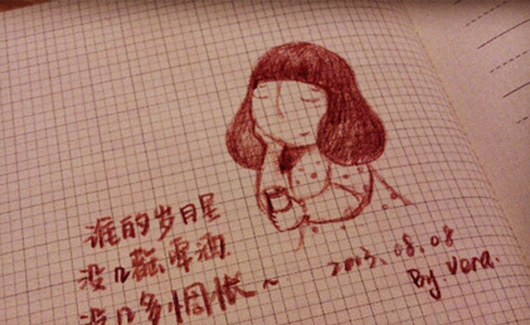 谁的岁月里
没几瓶啤酒
没几多惆怅~
2013.08.08
By Vera.